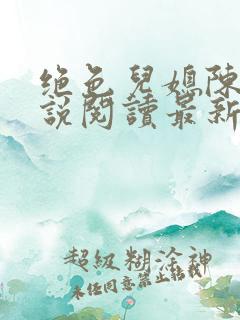 絕色兒媳陳
說閱讀最新
超級糊涂神
未任同意禁止轉載